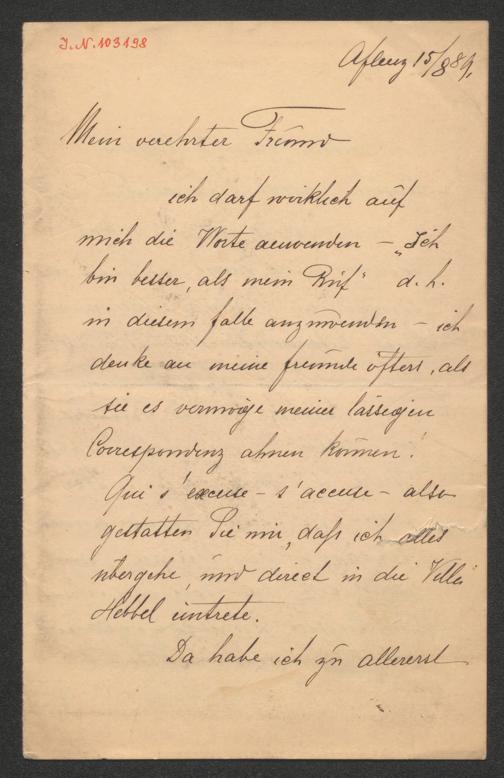 J.N. 103198
Aflenz 15/8 89.
Mein verehrter Freund
ich darf wirklich auf
mich die Worte anwenden – „Ich
bin besser, als mein Ruf“ d. h.
in diesem Falle anzuwenden – ich
denke an meine Freunde öfters, als
sie es vermöge meiner lässigen
Correspondenz ahnen können!
Qui s'excuse – s'accuse – also
gestatten Sie mir, daß ich alles
übergehe, und direct in die Villa
Hebbel eintrete.
Da habe ich zu allererst